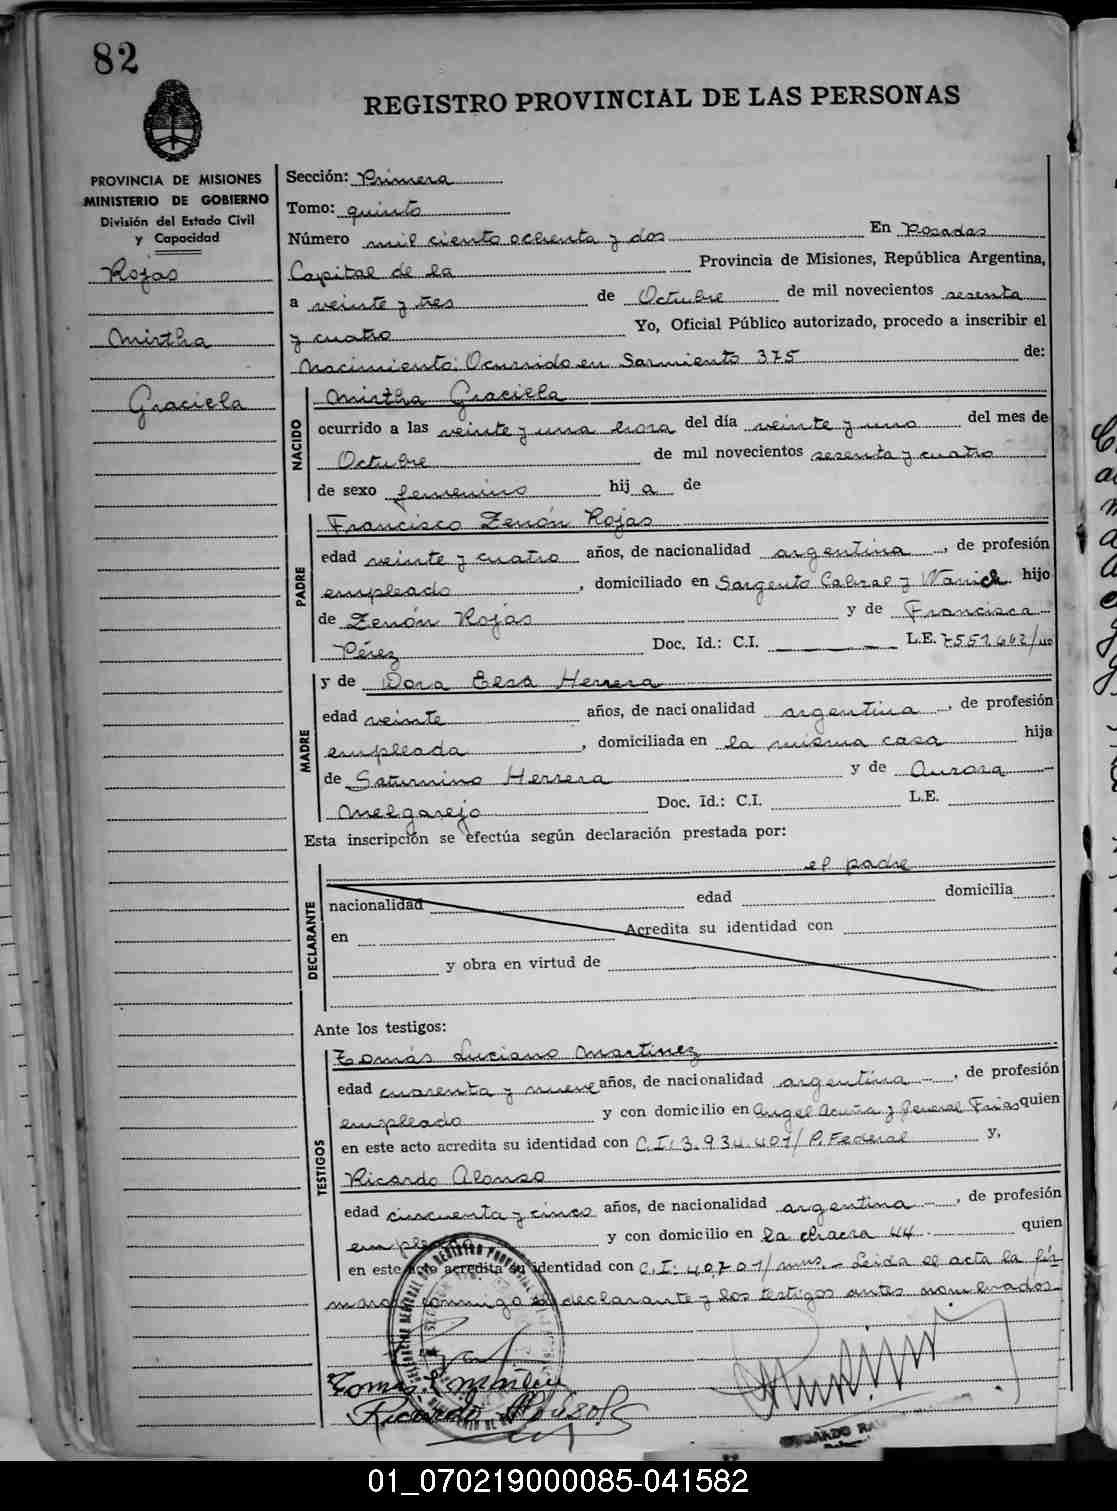 82
REGISTRO PROVINCIAL DE LAS PERSONAS
PROVINCIA DE MISIONES
MINISTERIO DE GOBIERNO
División del Estado Civil
y Capacidad
Rojas
Mirtha
Graciela
Sección: Primera
Tomo: quinto
Número mil ciento ochenta y dos En Posadas
Capital de la Provincia de Misiones, República Argentina,
a veinte y tres de Octubre de mil novecientos sesenta
y cuatro Yo, Oficial Público autorizado, procedo a inscribir el
Nacimiento: Ocurrido en Sarmiento 375 de:
NACIDO
Mirtha Graciela
ocurrido a las veinte y una hora del día veinte y uno del mes de
Octubre de mil novecientos sesenta y cuatro
de sexo femenino hij a de
PADRE
Francisco Zenón Rojas
edad veinte y cuatro años, de nacionalidad argentina, de profesión
empleado, domiciliado en Sargento Cabral y Wanick hijo
de Zenón Rojas y de Francisca
Pérez Doc. Id.: C.I. L.E. 7551.662/
MADRE
y de Dora Elsa Herrera
edad veinte años, de nacionalidad argentina, de profesión
empleada, domiciliada en la misma casa hija
de Saturnino Herrera y de Aurora
Melgarejo Doc. Id.: C.I. L.E.
Esta inscripción se efectúa según declaración prestada por:
DECLARANTE
el padre
nacionalidad edad domicilia
en Acredita su identidad con
y obra en virtud de
Ante los testigos:
TESTIGOS
Tomás Luciano Martínez
edad cuarenta y nueve años, de nacionalidad argentina, de profesión
empleado y con domicilio en Angel Acuña y General Frias quien
en este acto acredita su identidad con C.I: 3.934.407/P. Federal y,
Ricardo Alonso
edad cincuenta y cinco años, de nacionalidad argentina, de profesión
empleado y con domicilio en la chacra 44 quien
en este acto acredita su identidad con C.I: 40.707/mns. - Leida el acta la fir
man conmigo el declarante y los testigos antes nombrados
01_070219000085-041582